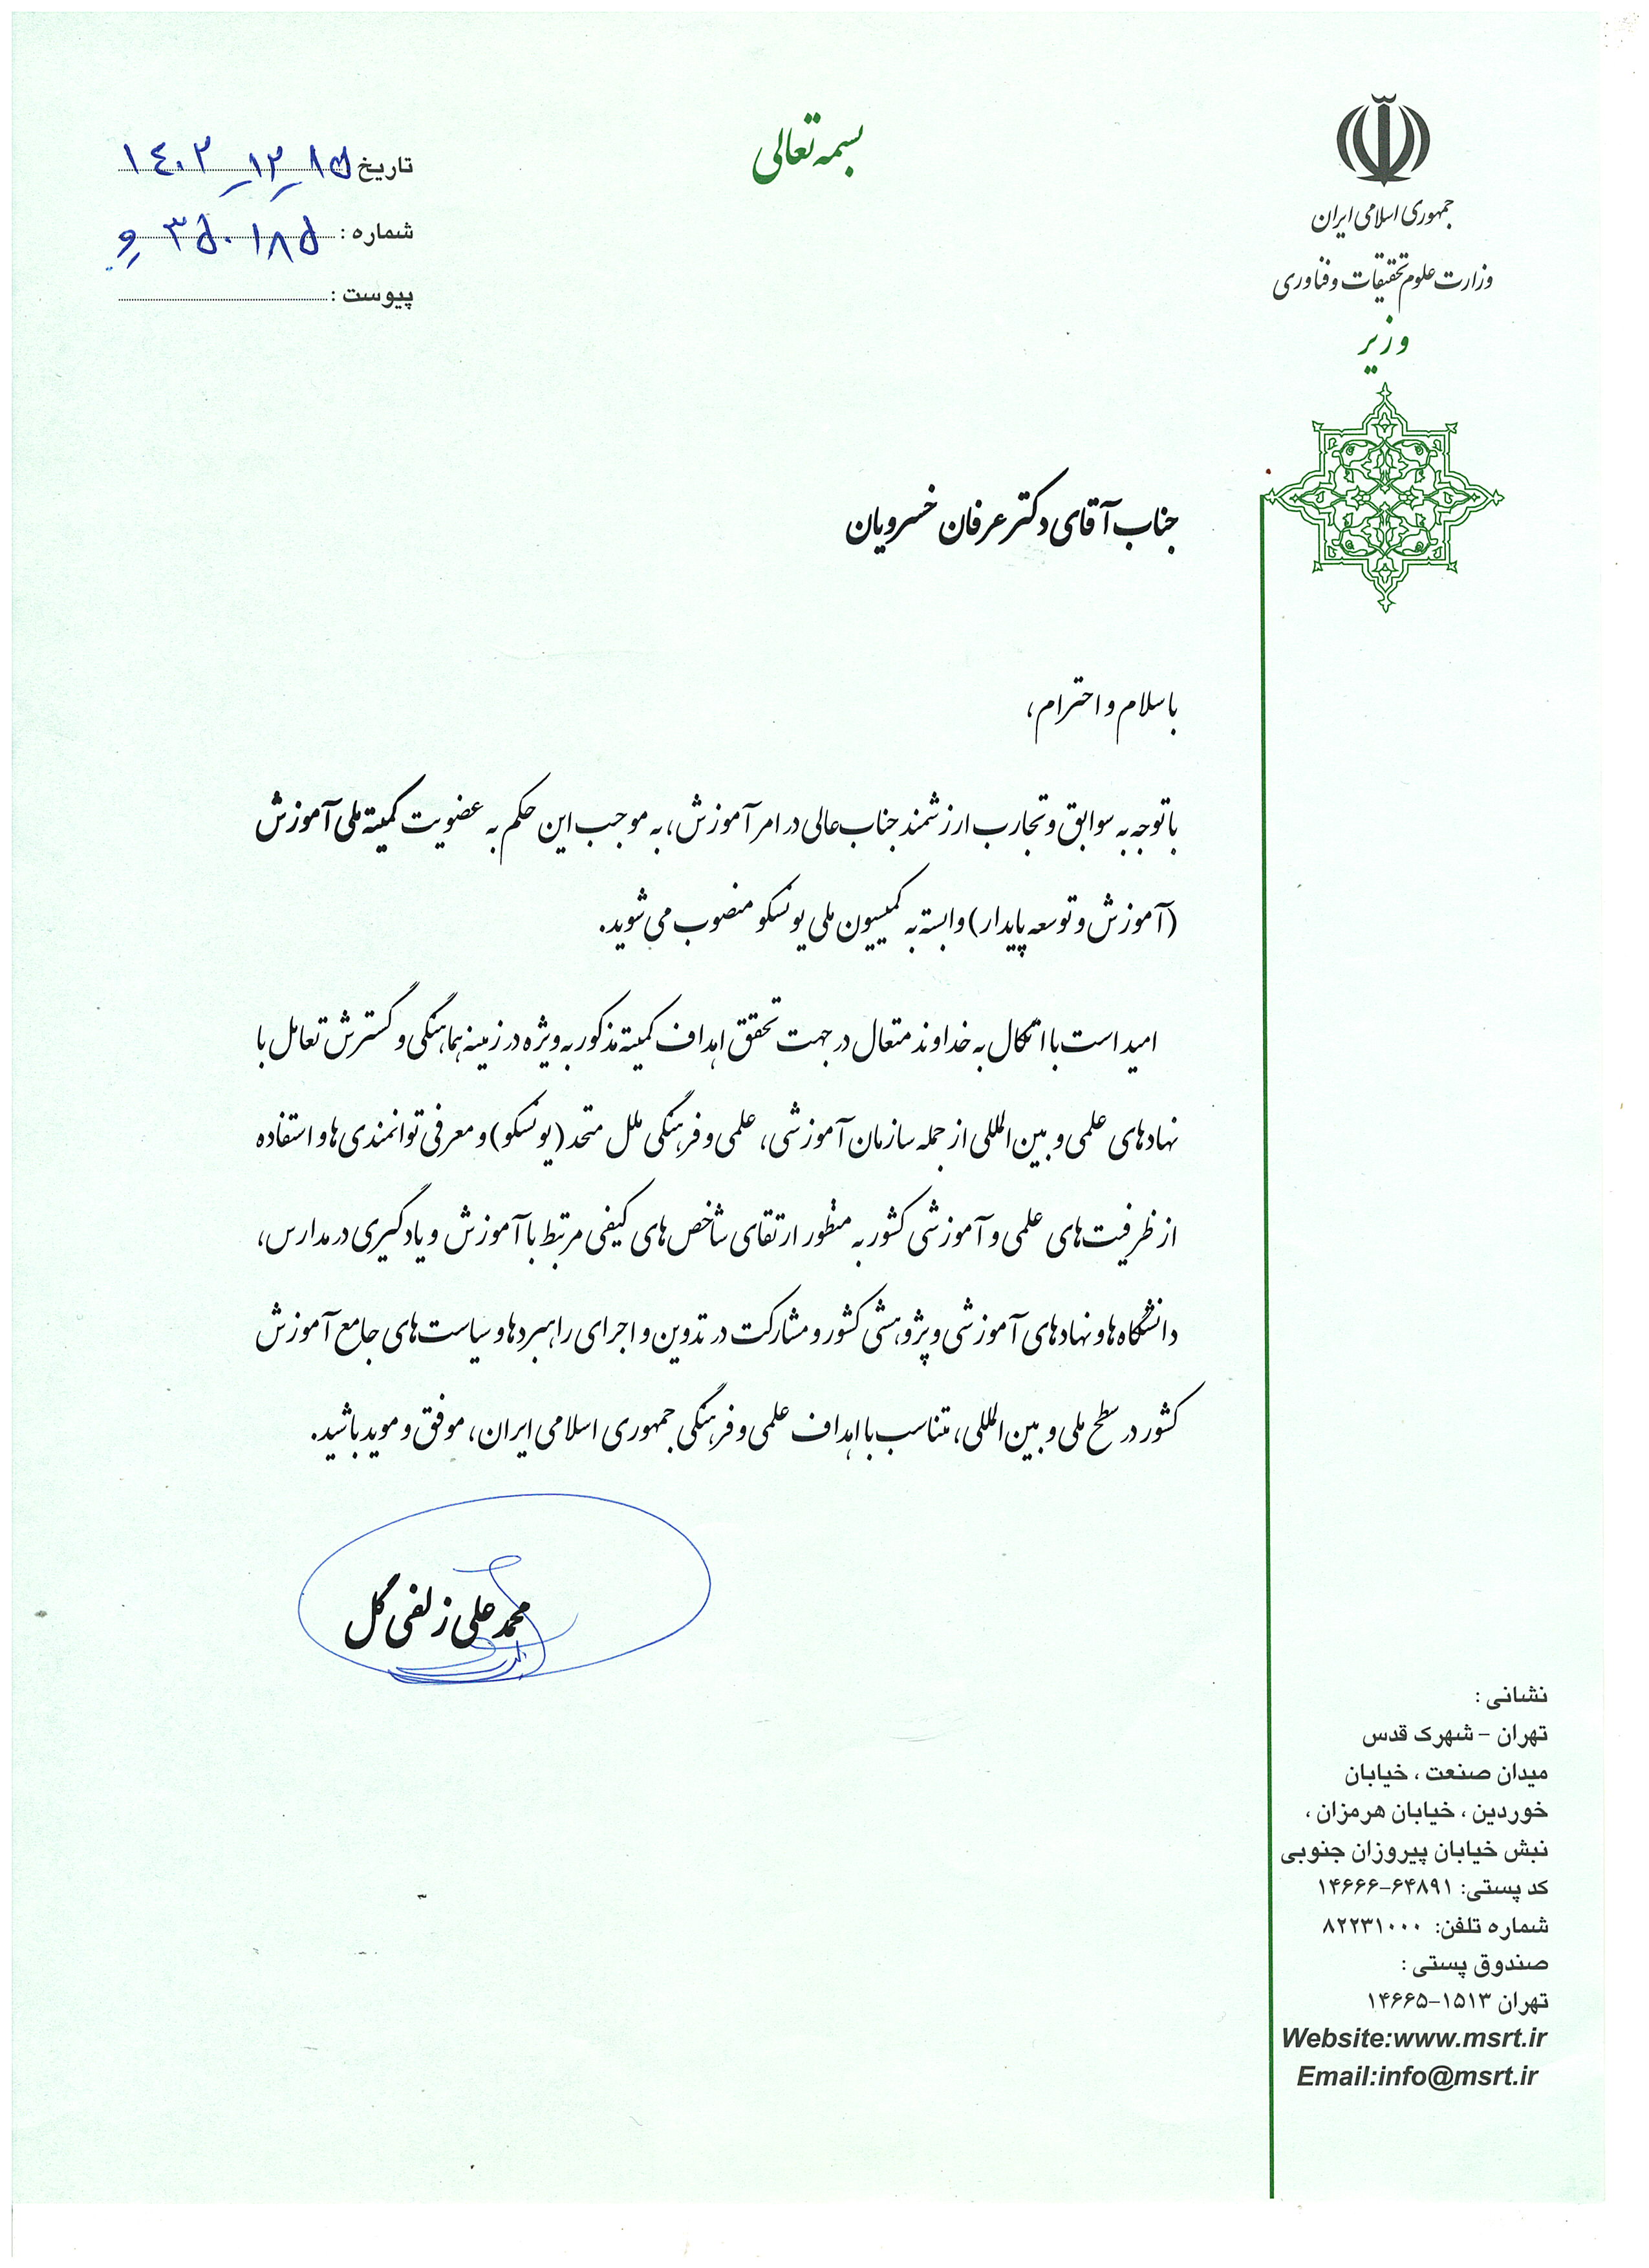 بسمه تعالی
جمهوری اسلامی ایران
وزارت علوم تحقیقات و فناوری
وزیر
تاریخ ۱۴۰۲-۱۲-۱۵
شماره : ۳۵۰۱۸۵ و
پیوست :
جناب آقای دکتر عرفان خسرویان
با سلام و احترام،
با توجه به سوابق و تجارب ارزشمند جناب عالی در امر آموزش، به موجب این حکم به عضویت کمیته ملی آموزش
(آموزش و توسعه پایدار) وابسته به کمیسیون ملی یونسکو منصوب می شوید.
امید است با اتکال به خداوند متعال در جهت تحقق اهداف کمیته مذکور به ویژه در زمینه هماهنگی و گسترش تعامل با
نهادهای علمی و بین المللی از جمله سازمان آموزشی، علمی و فرهنگی ملل متحد (یونسکو) و معرفی توانمندی ها و استفاده
از ظرفیت های علمی و آموزشی کشور به منظور ارتقای شاخص های کیفی مرتبط با آموزش و یادگیری در مدارس،
دانشگاه ها و نهادهای آموزشی و پژوهشی کشور و مشارکت در تدوین و اجرای راهبردها و سیاست های جامع آموزش
کشور در سطح ملی و بین المللی، متناسب با اهداف علمی و فرهنگی جمهوری اسلامی ایران، موفق و موید باشید.
محمد علی زلفی گل
نشانی :
تهران - شهرک قدس
میدان صنعت ، خیابان
خوردین ، خیابان هرمزان ،
نبش خیابان پیروزان جنوبی
کد پستی: ۶۴۸۹۱-۱۴۶۶۶
شماره تلفن: ۸۲۲۳۱۰۰۰
صندوق پستی :
تهران ۱۵۱۳-۱۴۶۶۵
Website:www.msrt.ir
Email:info@msrt.ir